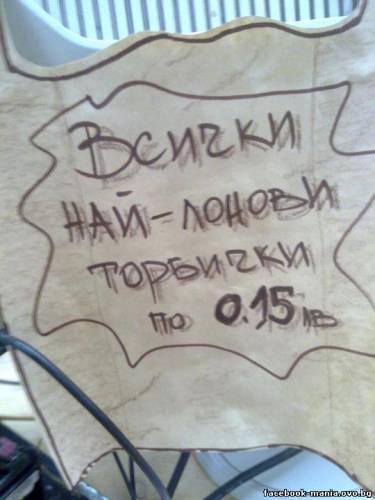 Всички
най-лонови
торбички
по 0.15 лв
facebook-mania.ovo.bg